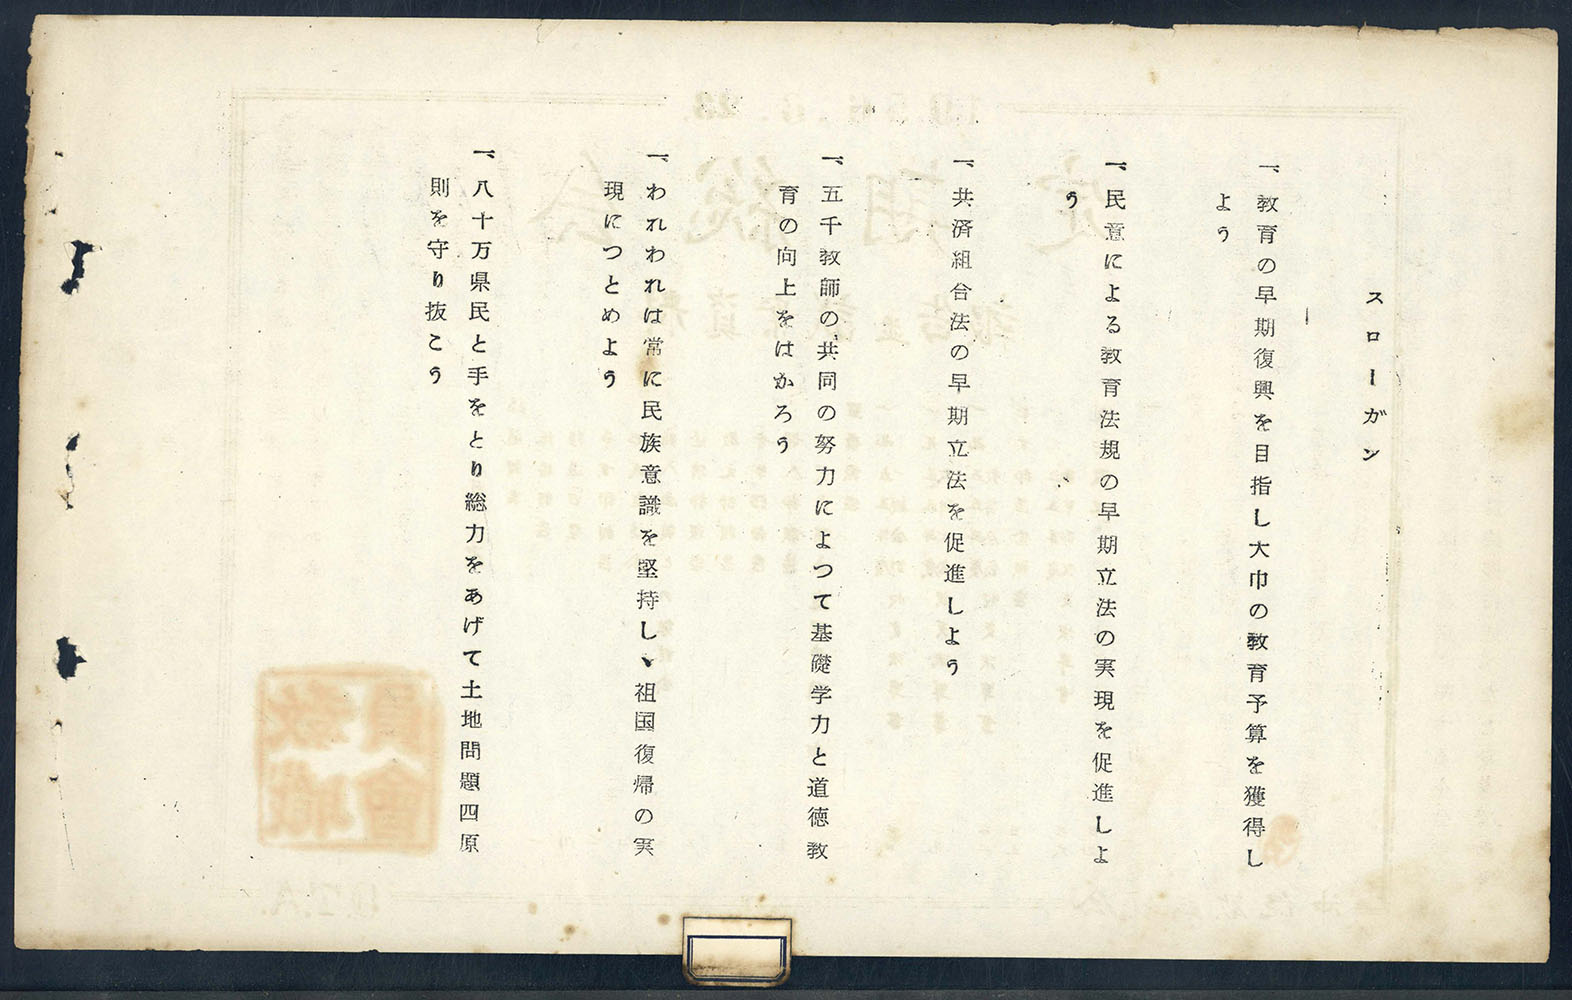 スローガン
一、教育の早期復興を目指し大巾の教育予算を獲得し
よう
一、民意による教育法規の早期立法の実現を促進しよ
う
一、共済組合法の早期立法を促進しよう
一、五千教師の共同の努力によつて基礎学力と道徳教
育の向上をはかろう
一、われわれは常に民族意識を堅持し、祖国復帰の実
現につとめよう
一、八十万県民と手をとり総力をあげて土地問題四原
則を守り抜こう